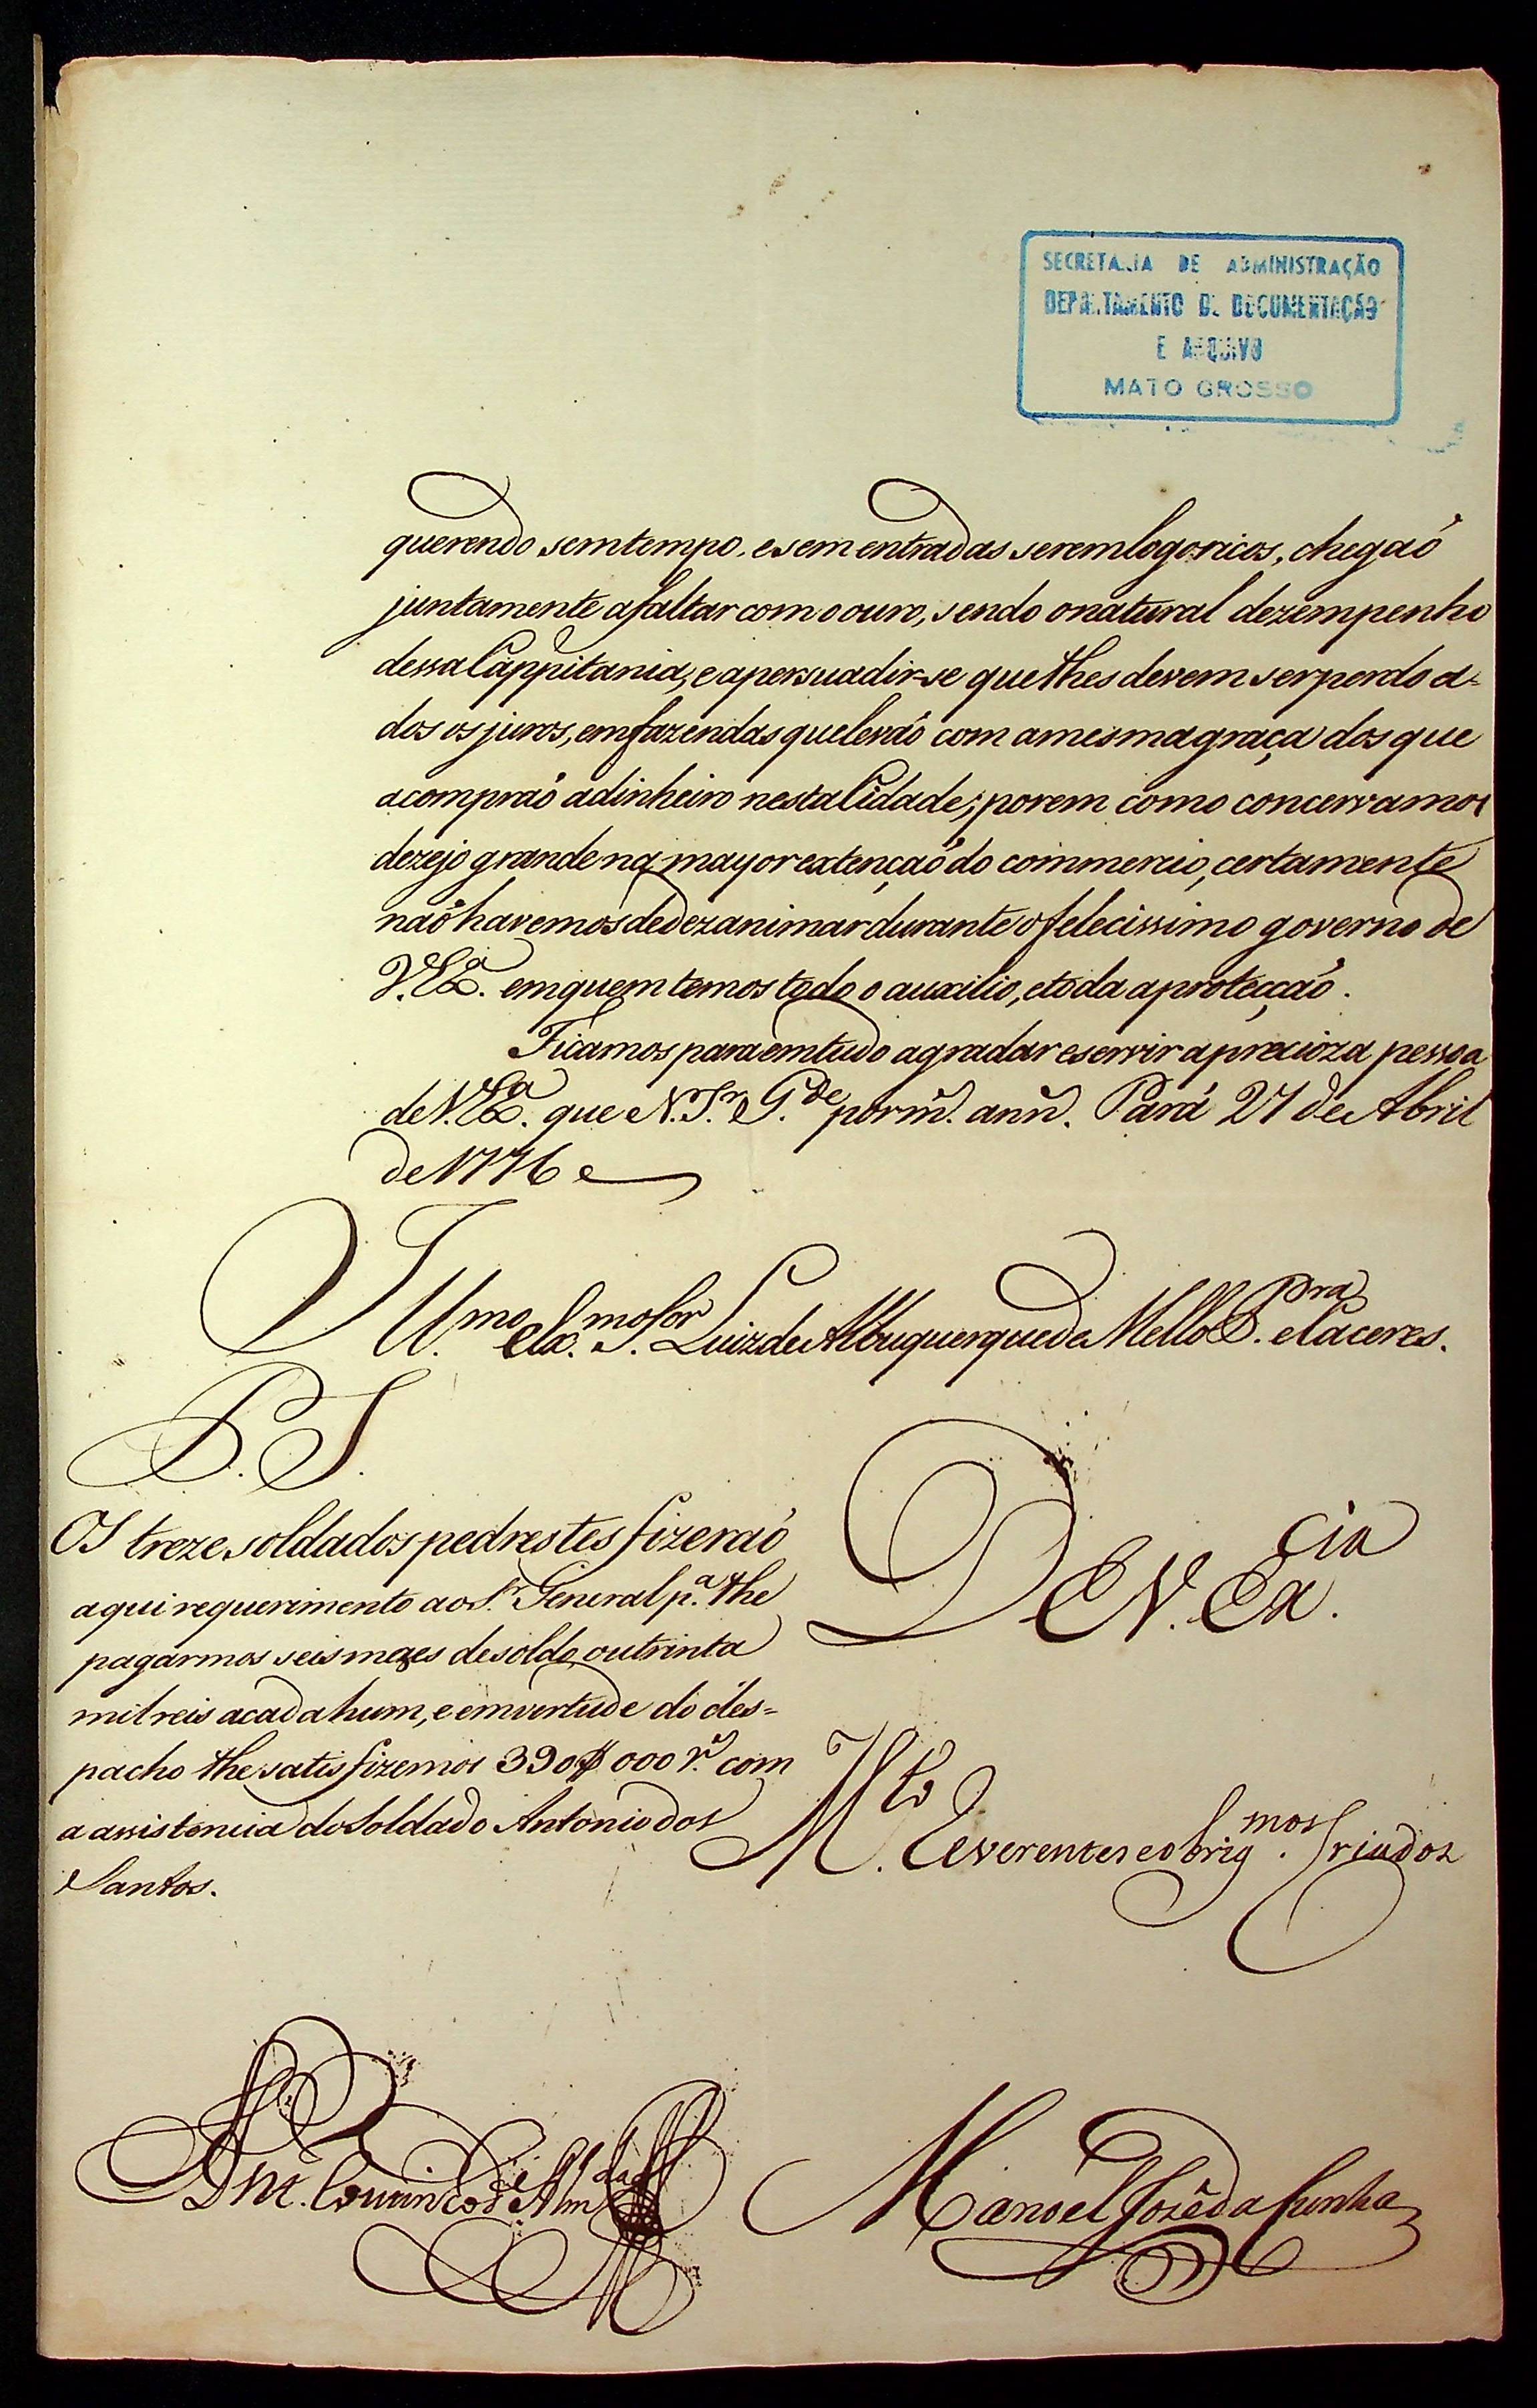 SECRETARIA DE ADMINISTRAÇÃO
DEPARTAMENTO DE DOCUMENTAÇÃO
E ARQUIVO
MATO GROSSO
querendo sem tempo, e sem entradas serem logo ricos, chegaó
juntamente a faltar com o ouro, sendo o natural dezempenho
dessa Cappitania, e a persuadir-se que lhes devem ser perdoa-
dos os juros, em fazendas que levaó com a mesma graça dos que
a compraó a dinheiro nesta Cidade; porem como concervamos
dezejo grande na mayor extençaó do commercio, certamente
naó havemos de dezanimar durante o felecissimo governo de
V. Ex.ª em quem temos todo o auxilio, e toda a protecçaó.
Ficamos para em tudo agradar e servir a precioza pessoa
de V. Ex.ª que N. Sr. G.de por m.s ann.s Pará 27 de Abril
de 1776
Ill.mo e Ex.mo S.or Luiz de Albuquerque de Mello P.ra e Caceres.
P. S.
Os treze soldados pedrestes fizeraó
aqui requerimento ao S.r General p.ª lhe
pagarmos seis mezes de soldo, ou trinta
mil reis a cada hum, e em vertude do des=
pacho lhe satisfizemos 390$000 r.s com
a assistencia do Soldado Antonio dos
Santos.
De V. Ex.cia
M.to Reverentes e obrig.mos Criados
Ant.º Coutinho de Alm.da
Manoel Jozê da Cunha